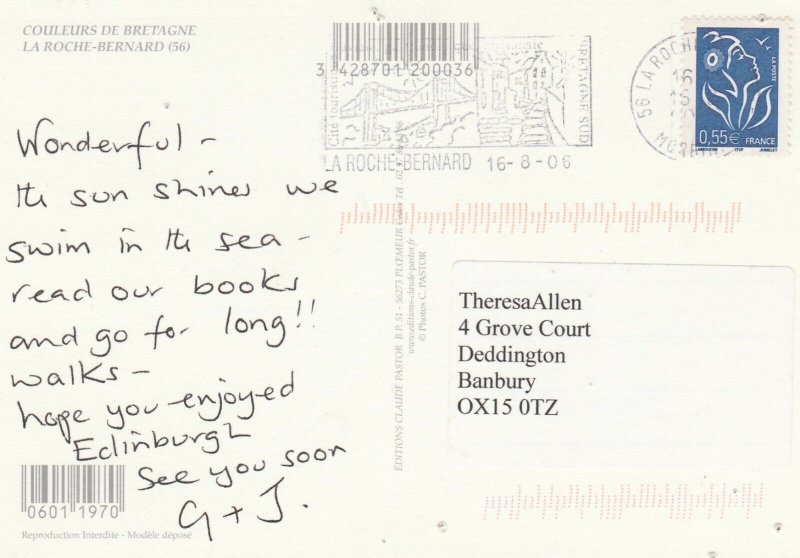 COULEURS DE BRETAGNE
LA ROCHE-BERNARD (56)
3 428701 200036
BRETAGNE SUD
LA ROCHE-BERNARD 16-8-06
56 LA ROCHE
LA POSTE
0,55€ FRANCE
Wonderful -
the sun shines we
swim in the sea -
read our books
and go for long!!
walks -
hope you enjoyed
Edinburgh
See you soon
G + J.
ÉDITIONS CLAUDE PASTOR B.P. 51 - 56273 PLŒMEUR Cedex Tél
www.editions-claude-pastor.fr
© Photos C. PASTOR
TheresaAllen
4 Grove Court
Deddington
Banbury
OX15 0TZ
0601 1970
Reproduction Interdite - Modèle déposé